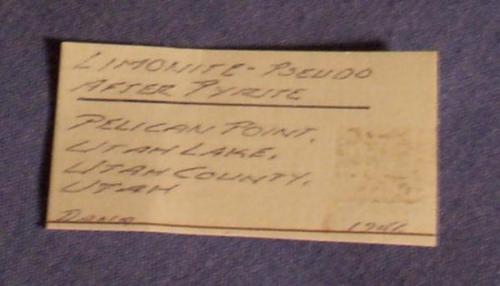 LIMONITE - PSEUDO
AFTER PYRITE
PELICAN POINT,
UTAH LAKE,
UTAH COUNTY,
UTAH